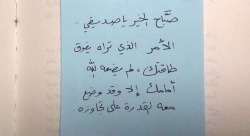 صبَّاح الخير ياصديقي.
الأمر الذي تراه يفوق
طاقتك، لم يضعه الله
أمامك إلا وقد وضع
معه القدرة على تجاوزه.